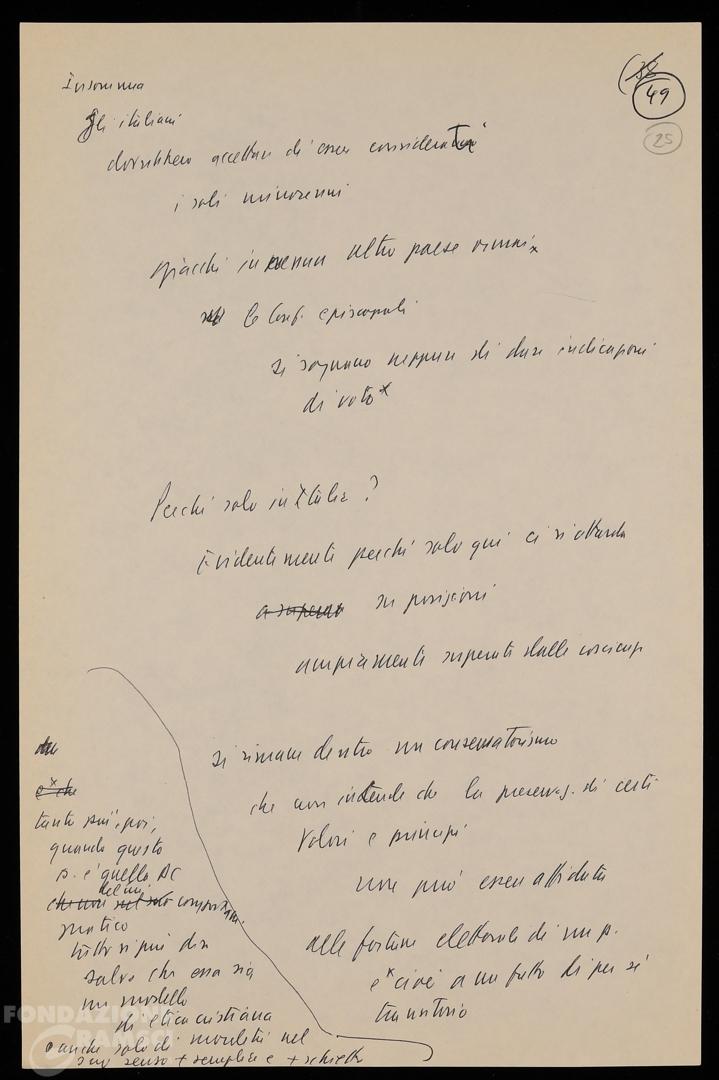 (38
49
25
Insomma
gli italiani
dovrebbero accettare di essere considerati
i soli minorenni
giacché in nessun altro paese ormai x
le Conf. episcopali
si sognano neppure di dare indicazioni
di voto x
Perché solo in Italia?
Evidentemente perché solo qui ci si attarda
a superar su posizioni
ampiamente superate dalle coscienze
si rimane dentro un conservatorismo
che non intende che la preservaz. di certi
valori e principi
non può essere affidata
alle fortune elettorali di un p.
e x cioè a un fatto di per sé
transitorio
e x che
tanto più, poi,
quando questo
p. è quello DC
che non del cui comporta
matico
tutto si può dire
salvo che essa sia
un modello
di etica cristiana
o anche solo di moralità nel
suo senso + semplice e + schietto
FONDAZIONE
GRAMSCI